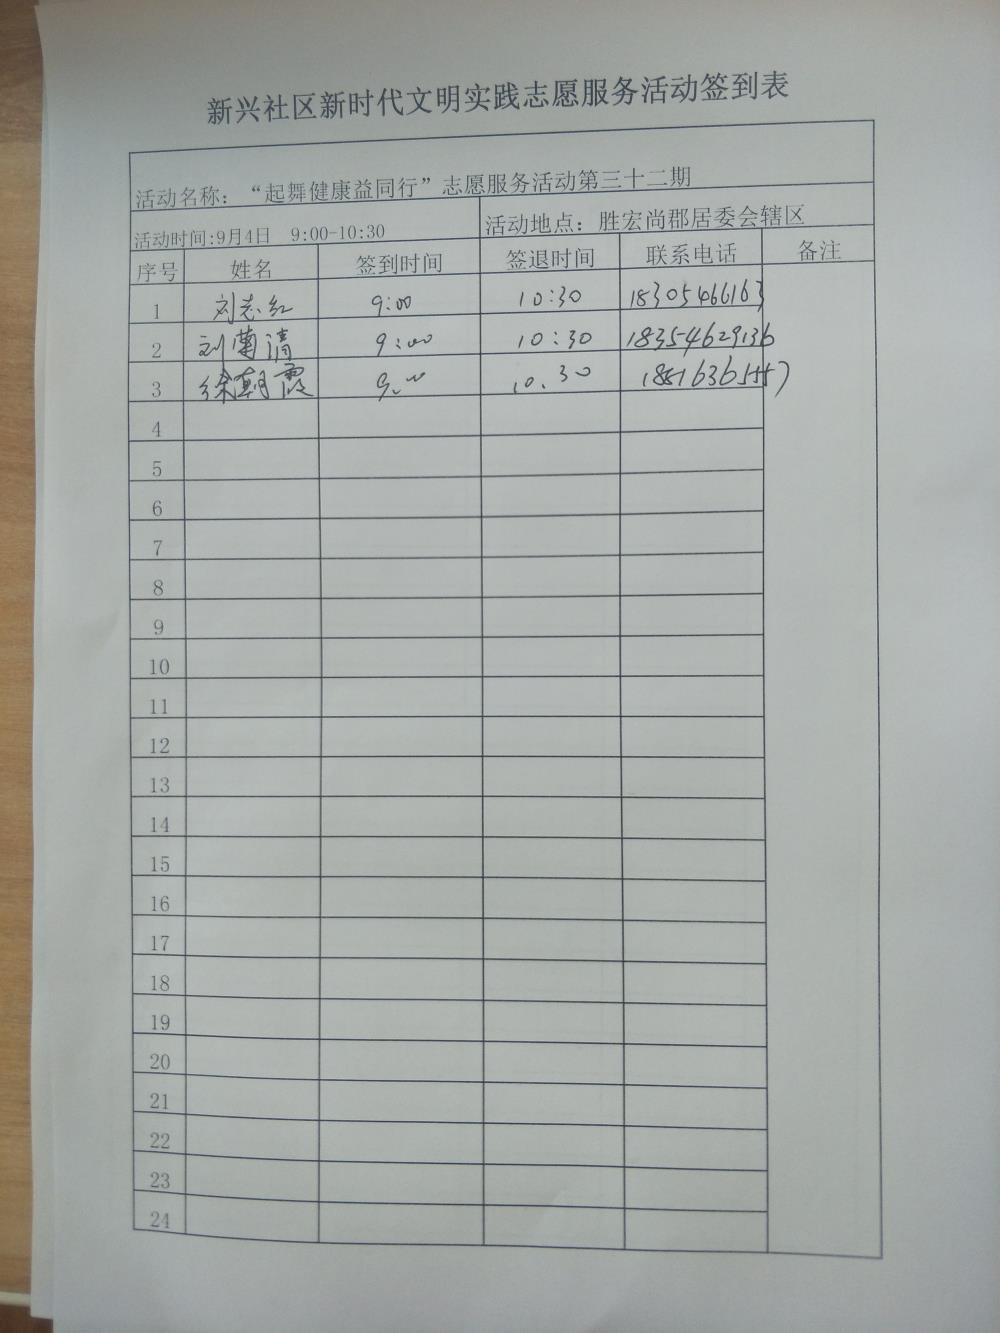 新兴社区新时代文明实践志愿服务活动签到表
活动名称：“起舞健康益同行”志愿服务活动第三十二期
活动时间:9月4日 9:00-10:30 活动地点：胜宏尚郡居委会辖区
序号 姓名 签到时间 签退时间 联系电话 备注
1 刘志红 9:00 10:30 18305466163
2 刘兰清 9:00 10:30 18354629136
3 徐朝霞 9:00 10.30
4
5
6
7
8
9
10
11
12
13
14
15
16
17
18
19
20
21
22
23
24